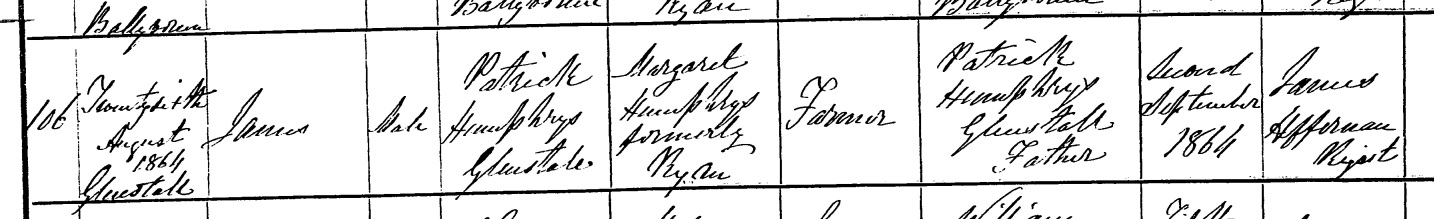 Ballyvoreen
Ballyvoreen
Ryan
Ballyvoreen
106
Twentysixth
August
1864
Glenstall
James
Male
Patrick
Humphrys
Glenstale
Margaret
Humphrys
formerly
Ryan
Farmer
Patrick
Humphrys
Glenstall
Father
Second
September
1864
James
Heffernan
Regist
William